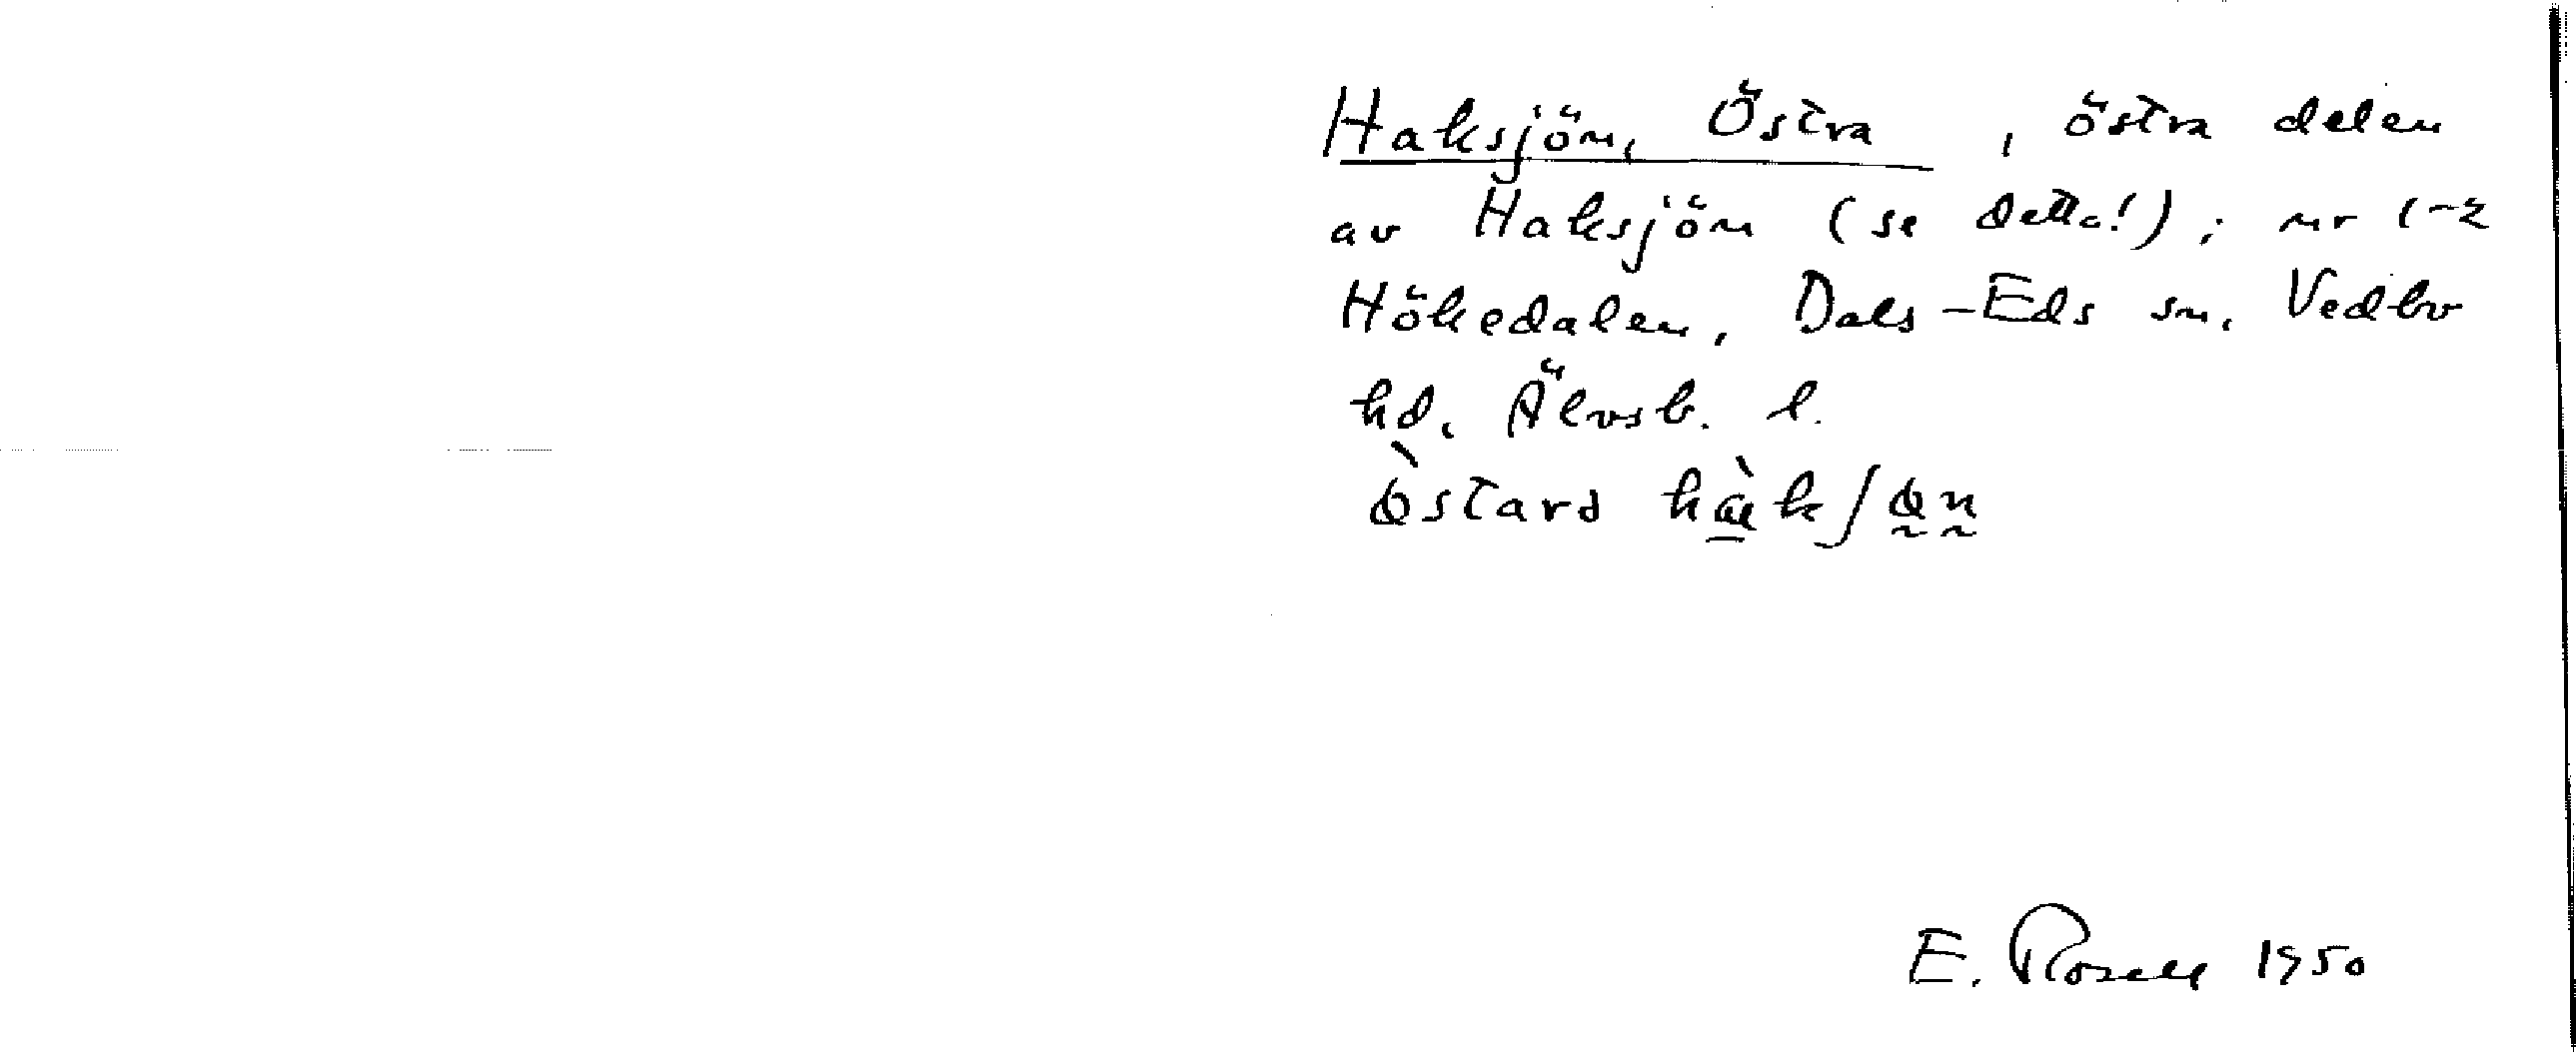 Haksjön, Östra, östra delen
av Haksjön (se detta!); nr 1-2
Hökedalen, Dals-Eds sn, Vedbo
hd, Älvsb. l.
E. Rosell 1950